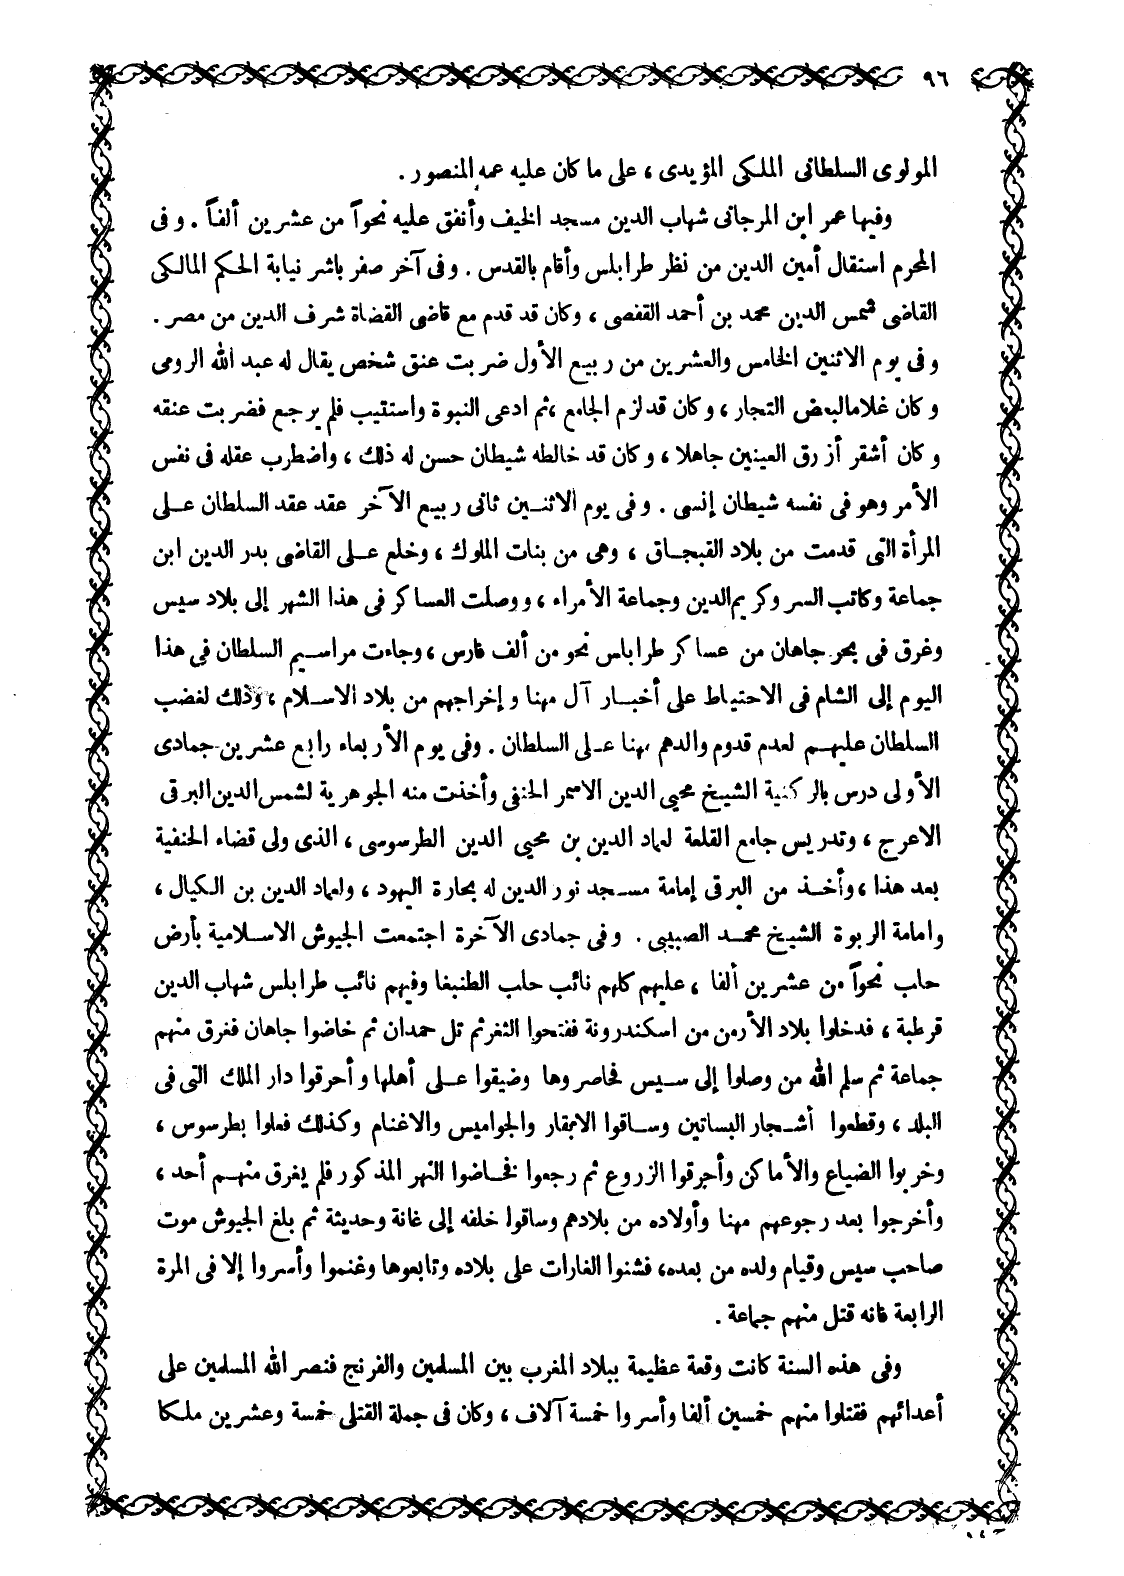 ٩٦
المولوى السلطانى الملكى المؤيدى ، على ما كان عليه عمه المنصور .
وفيها عمر ابن المرجانى شهاب الدين مسجد الخيف وأنفق عليه نحواً من عشرين ألفاً . وفى
المحرم استقال أمين الدين من نظر طرابلس وأقام بالقدس . وفى آخر صفر باشر نيابة الحكم المالكى
القاضى شمس الدين محمد بن أحمد القفصى ، وكان قد قدم مع قاضى القضاة شرف الدين من مصر .
وفى يوم الاثنين الخامس والعشرين من ربيع الأول ضربت عنق شخص يقال له عبد الله الرومى
وكان غلاما لبعض التجار ، وكان قد لزم الجامع ، ثم ادعى النبوة واستتيب فلم يرجع فضربت عنقه
وكان أشقر أزرق العينين جاهلا ، وكان قد خالطه شيطان حسن له ذلك ، واضطرب عقله فى نفس
الأمر وهو فى نفسه شيطان إنسى . وفى يوم الاثنين ثانى ربيع الآخر عقد عقد السلطان على
المرأة التى قدمت من بلاد القبجاق ، وهى من بنات الملوك ، وخلع على القاضى بدر الدين ابن
جماعة وكاتب السر وكريم الدين وجماعة الأمراء ، ووصلت العساكر فى هذا الشهر إلى بلاد سيس
وغرق فى بحر جاهان من عساكر طرابلس نحو من ألف فارس ، وجاءت مراسيم السلطان فى هذا
اليوم إلى الشام فى الاحتياط على أخبار آل مهنا وإخراجهم من بلاد الاسلام ، وذلك لغضب
السلطان عليهم لعدم قدوم والدهم مهنا على السلطان . وفى يوم الأربعاء رابع عشرين جمادى
الأولى درس بالركنية الشيخ محيى الدين الاسمر الحنفى وأخذت منه الجوهرية لشمس الدين البرقى
الاعرج ، وتدريس جامع القلعة لعماد الدين بن محيى الدين الطرسوسى ، الذى ولى قضاء الحنفية
بعد هذا ، وأخذ من البرقى إمامة مسجد نور الدين له بحارة اليهود ، ولعماد الدين بن الكيال ،
وامامة الربوة الشيخ محمد الصبيبى . وفى جمادى الآخرة اجتمعت الجيوش الاسلامية بأرض
حلب نحواً من عشرين ألفا ، عليهم كلهم نائب حلب الطنبغا وفيهم نائب طرابلس شهاب الدين
قرطبة ، فدخلوا بلاد الأرمن من اسكندرونة ففتحوا الثغر ثم تل حمدان ثم خاضوا جاهان فغرق منهم
جماعة ثم سلم الله من وصلوا إلى سيس فحاصروها وضيقوا على أهلها وأحرقوا دار الملك التى فى
البلد ، وقطعوا أشجار البساتين وساقوا الابقار والجواميس والاغنام وكذلك فعلوا بطرسوس ،
وخربوا الضياع والأماكن وأحرقوا الزروع ثم رجعوا فخاضوا النهر المذكور فلم يغرق منهم أحد ،
وأخرجوا بعد رجوعهم مهنا وأولاده من بلادهم وساقوا خلفه إلى غانة وحديثة ثم بلغ الجيوش موت
صاحب سيس وقيام ولده من بعده، فشنوا الغارات على بلاده وتابعوها وغنموا وأسروا إلا فى المرة
الرابعة فانه قتل منهم جماعة .
وفى هذه السنة كانت وقعة عظيمة ببلاد المغرب بين المسلمين والفرنج فنصر الله المسلمين على
أعدائهم فقتلوا منهم خمسين ألفا وأسروا خمسة آلاف ، وكان فى جملة القتلى خمسة وعشرين ملكا